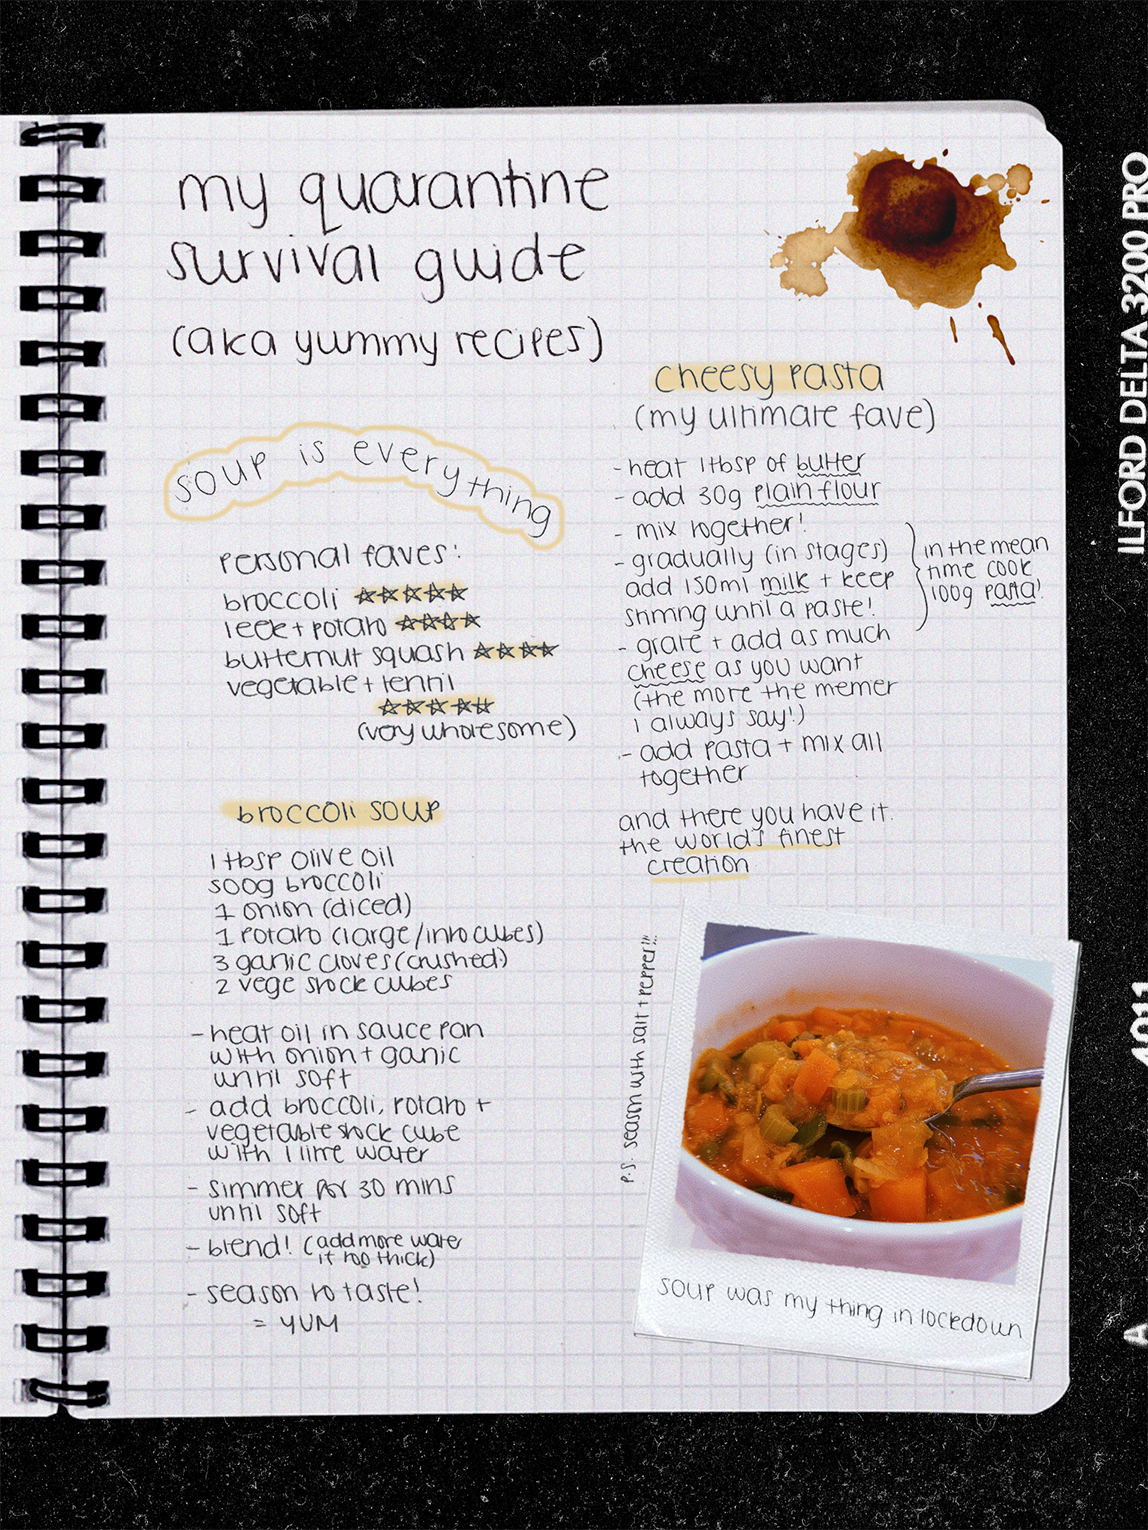 my quarantine
survival guide
(aka yummy recipes)
soup is everything
personal faves:
broccoli ☆☆☆☆☆
leek + potato ☆☆☆☆
butternut squash ☆☆☆☆
vegetable + lentil
☆☆☆☆☆
(very wholesome)
broccoli soup
1 tbsp olive oil
500g broccoli
1 onion (diced)
1 potato (large/into cubes)
3 garlic cloves (crushed)
2 vege stock cubes
- heat oil in sauce pan
with onion + garlic
until soft
- add broccoli, potato +
vegetable stock cube
with 1 litre water
- simmer for 30 mins
until soft
- blend! (add more water
if too thick)
- season to taste!
= YUM
cheesy pasta
(my ultimate fave)
- heat 1 tbsp of butter
- add 30g plain flour
- mix together!
- gradually (in stages)
add 150ml milk + keep
stirring until a paste!
in the mean
time cook
100g pasta!
- grate + add as much
cheese as you want
(the more the merrier
I always say!)
- add pasta + mix all
together
and there you have it.
the world's finest
creation
p.s. season with salt + pepper!!!
soup was my thing in lockdown
ILFORD DELTA 3200 PRO
4011
A